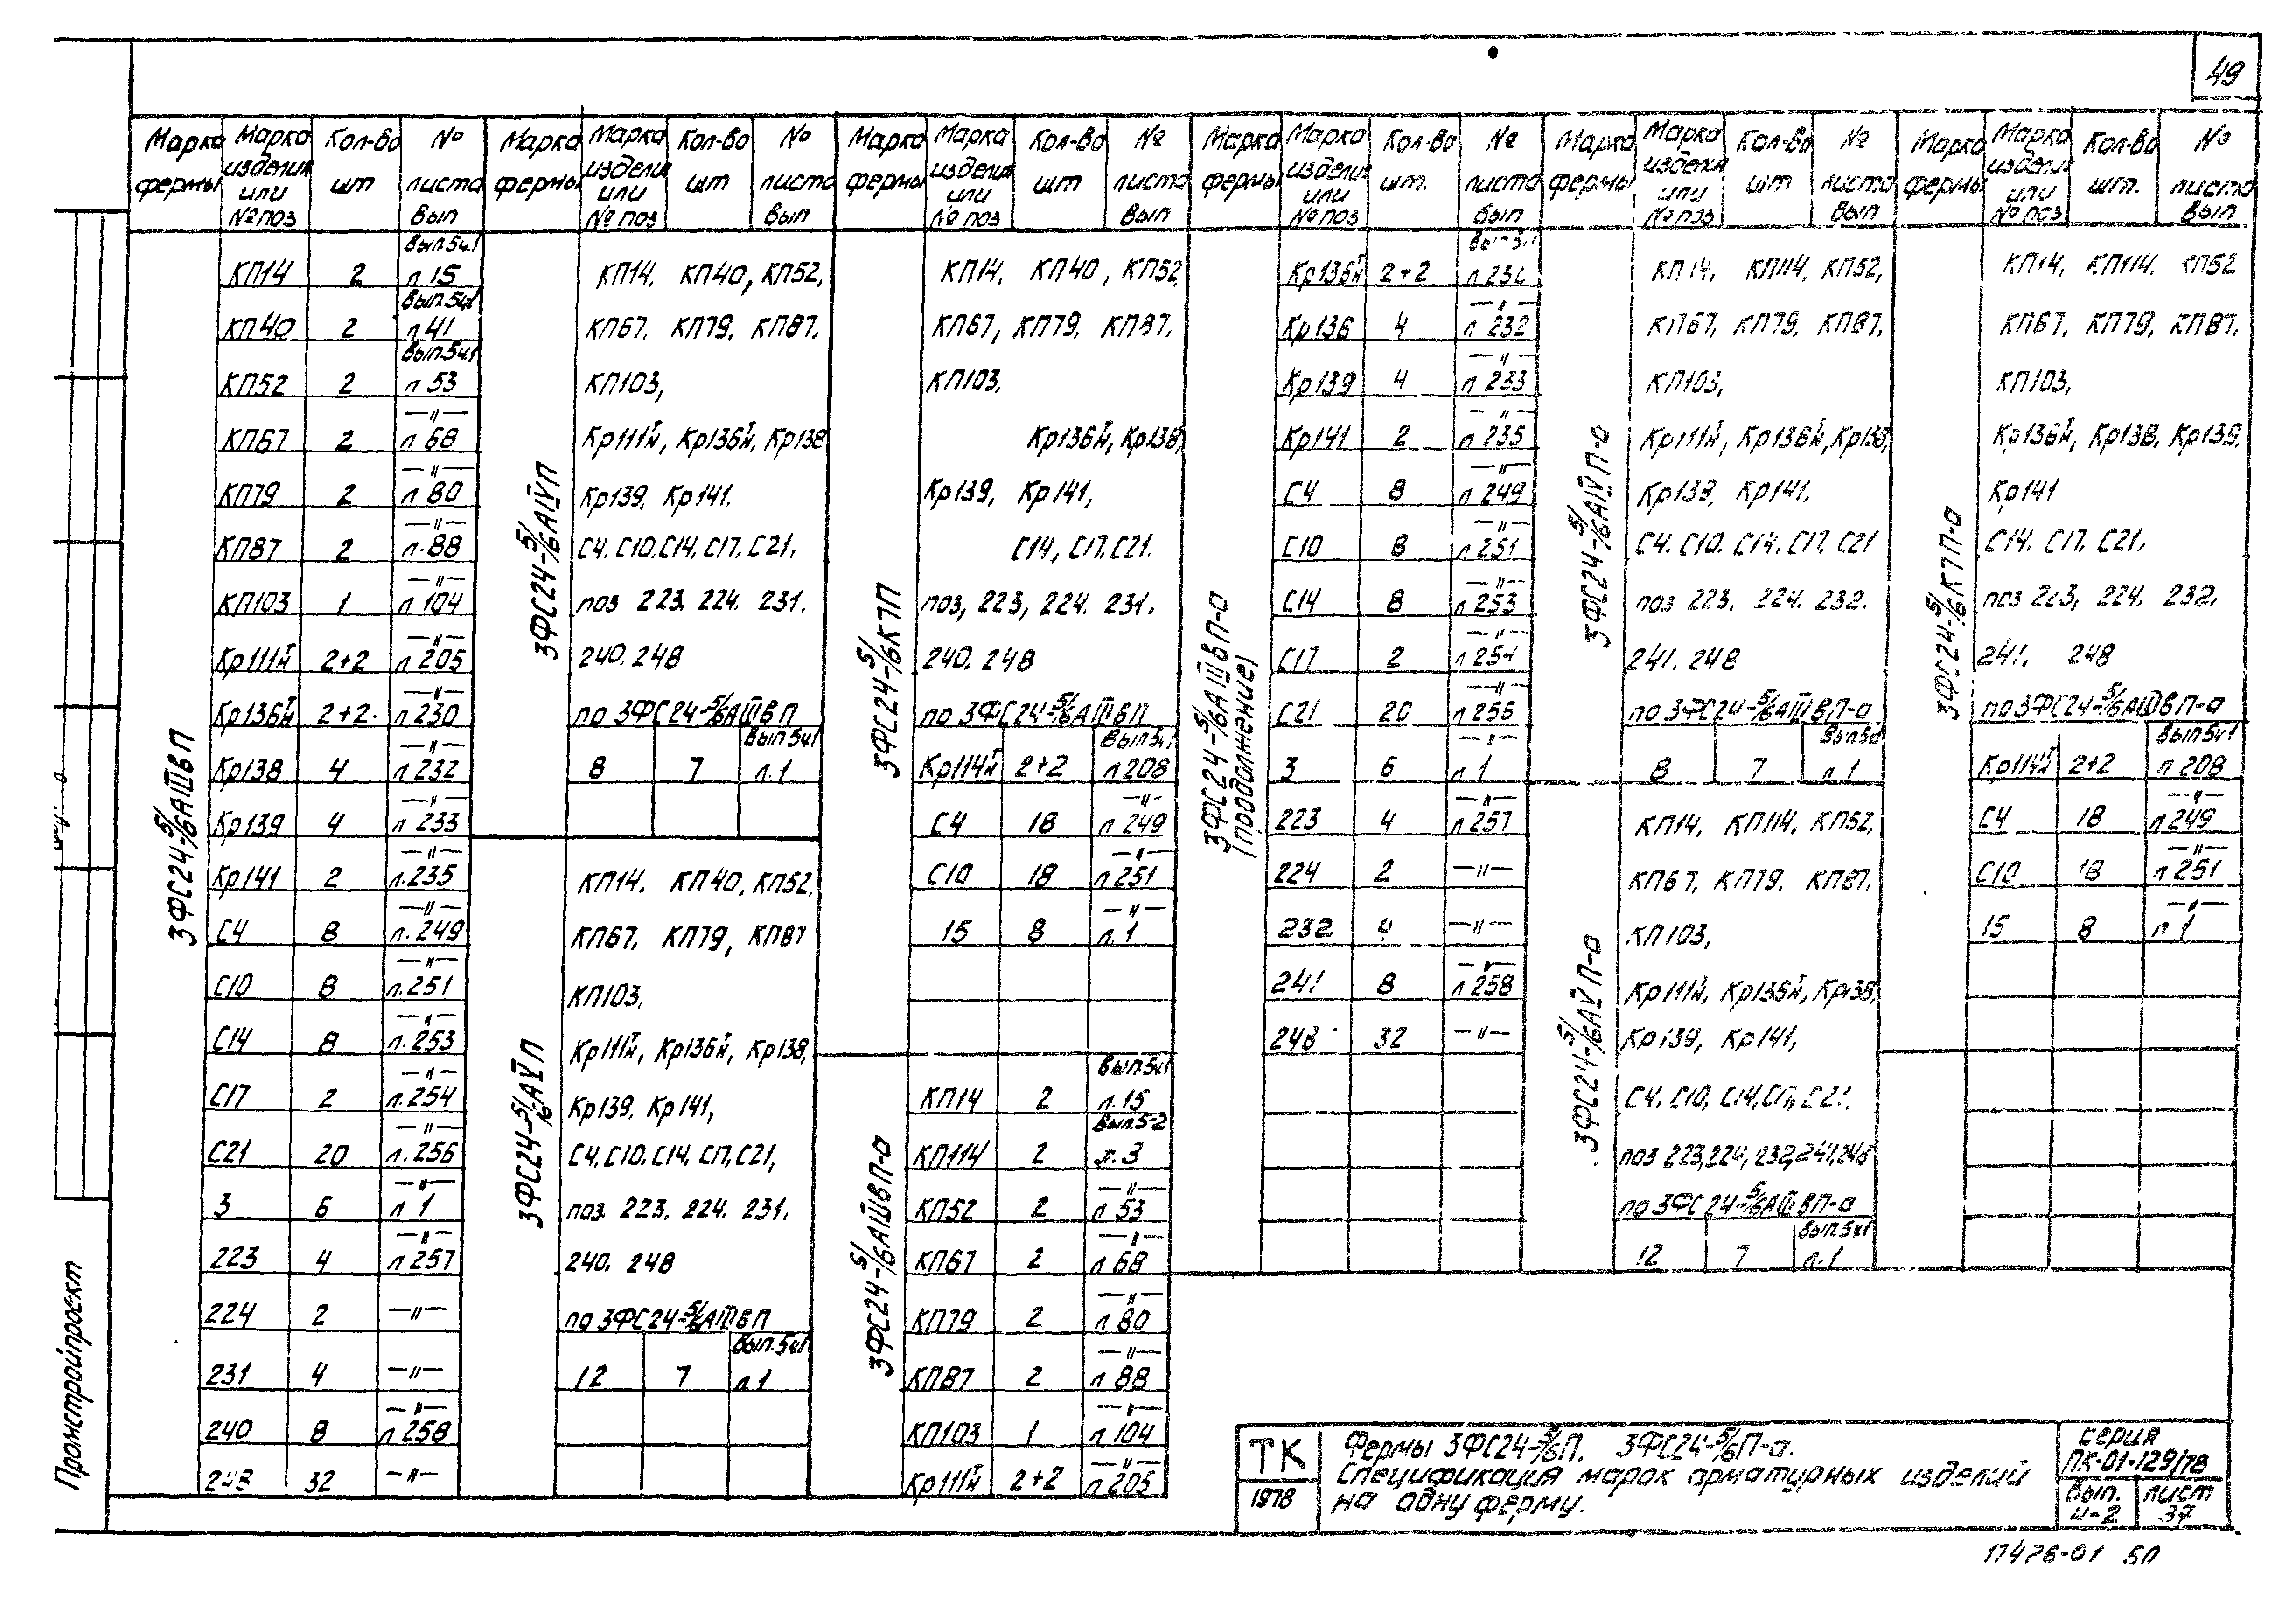 49
Марка фермы | Марка изделия или № поз | Кол-во шт | № листа вып
3ФС24-5/6АIIIвП
КП14 | 2 | Вып.5ч.1 л 15
КП40 | 2 | Вып.5ч.1 л 41
КП52 | 2 | Вып.5ч.1 л 53
КП67 | 2 | —"— л 68
КП79 | 2 | —"— л 80
КП87 | 2 | —"— л.88
КП103 | 1 | —"— л 104
Кр111т/н | 2+2 | —"— л 205
Кр136т/н | 2+2 | —"— л 230
Кр138 | 4 | —"— л 232
Кр139 | 4 | —"— л 233
Кр141 | 2 | —"— л.235
С4 | 8 | —"— л.249
С10 | 8 | —"— л.251
С14 | 8 | —"— л.253
С17 | 2 | —"— л.254
С21 | 20 | —"— л.256
3 | 6 | —"— л 1
223 | 4 | —"— л 257
224 | 2 | —"—
231 | 4 | —"—
240 | 8 | —"— л 258
248 | 32 | —"—
Марка фермы | Марка изделия или № поз | Кол-во шт | № листа вып
3ФС24-5/6АIVП
КП14, КП40, КП52,
КП67, КП79, КП87,
КП103,
Кр111т/н, Кр136т/н, Кр138
Кр139, Кр141.
С4. С10. С14. С17. С21.
поз 223. 224. 231.
240. 248
по 3ФС24-5/6АIIIвП
8 | 7 | Вып 5ч.1 л.1
3ФС24-5/6АVП
КП14. КП40, КП52,
КП67. КП79, КП87
КП103,
Кр111т/н, Кр136т/н, Кр138,
Кр139. Кр141,
С4. С10. С14. С17, С21,
поз. 223. 224. 231.
240. 248
по 3ФС24-5/6АIIIвП
12 | 7 | Вып.5ч.1 л.1
Марка фермы | Марка изделия или № поз | Кол-во шт | № листа вып
3ФС24-5/6К7П
КП14, КП40, КП52
КП67, КП79, КП87.
КП103.
Кр136т/н, Кр138,
Кр139, Кр141,
С14, С17. С21.
поз, 223, 224. 231.
240. 248
по 3ФС24-5/6АIIIвП
Кр114т/н | 2+2 | Вып 5ч.1 л 208
С4 | 18 | —"— л 249
С10 | 18 | —"— л 251
15 | 8 | —"— л.1
3ФС24-5/6АIIIвП-а
КП14 | 2 | Вып.5ч.1 л.15
КП114 | 2 | Вып.5-2 л.3
КП52 | 2 | —"— л 53
КП67 | 2 | —"— л 68
КП79 | 2 | —"— л 80
КП87 | 2 | —"— л 88
КП103 | 1 | —"— л 104
Кр111т/н | 2+2 | —"— л 205
Марка фермы | Марка изделия или № поз | Кол-во шт. | № листа вып
3ФС24-5/6АIIIвП-а
(продолжение)
Кр136т/н | 2+2
Кр136 | 4 | —"— л 232
Кр139 | 4 | —"— л 233
Кр141 | 2 | —"— л 235
С4 | 8 | —"— л 249
С10 | 8 | —"— л 251
С14 | 8 | —"— л 253
С17 | 2 | —"— л 254
С21 | 20 | —"— л 256
3 | 6 | —"— л 1
223 | 4 | —"— л 257
224 | 2 | —"—
232 | 4 | —"—
241 | 8 | —"— л 258
248 | 32 | —"—
Марка фермы | Марка изделия или № поз | Кол-во шт | № листа вып
3ФС24-5/6АIVП-а
КП14, КП114, КП52,
КП67, КП79, КП87,
КП103,
Кр111т/н, Кр136т/н, Кр138,
Кр139, Кр141.
С4. С10. С14. С17. С21
поз 223. 224. 232.
241. 248
по 3ФС24-5/6АIIIвП-а
8 | 7 | Вып 5ч1 л 1
3ФС24-5/6АVП-а
КП14. КП114. КП52,
КП67, КП79. КП87.
КП103,
Кр111т/н, Кр136т/н, Кр138,
Кр139, Кр141,
С4. С10, С14, С17, С21.
поз 223, 224, 232, 241, 248
по 3ФС24-5/6АIIIвП-а
12 | 7 | Вып.5ч1 л.1
Марка фермы | Марка изделия или № поз | Кол-во шт. | № листа вып
3ФС24-5/6К7П-а
КП14, КП114, КП52
КП67, КП79, КП87,
КП103,
Кр136т/н, Кр138, Кр139,
Кр141
С14. С17. С21.
поз 223, 224. 232.
241. 248
по 3ФС24-5/6АIIIвП-а
Кр114т/н | 2+2 | Вып 5ч1 л 208
С4 | 18 | —"— л 249
С10 | 18 | —"— л 251
15 | 8 | —"— л 1
Промстройпроект
ТК
1978
Фермы 3ФС24-5/6П, 3ФС24-5/6П-а.
Спецификация марок арматурных изделий
на одну ферму.
серия
ПК-01-129/78
Вып. лист
37
17426-01 50